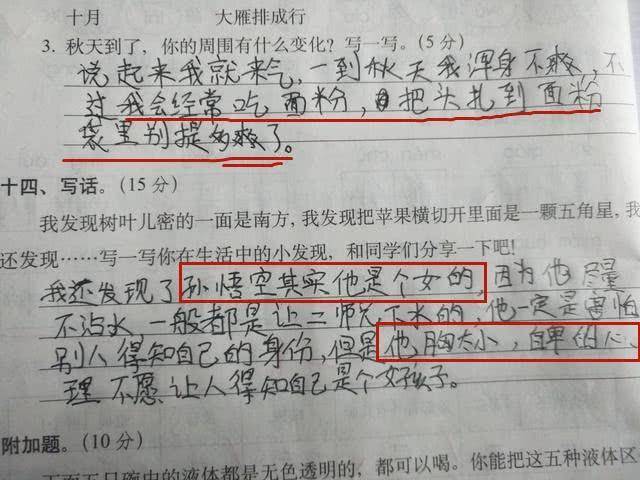 十月 大雁排成行
3. 秋天到了，你的周围有什么变化？写一写。（5分）
说起来我就来气，一到秋天我浑身不爽，不
过我会经常吃面粉，把头扎到面粉
袋里别提多爽了。
十四、写话。（15分）
我发现树叶儿密的一面是南方，我发现把苹果横切开里面是一颗五角星，我
还发现……写一写你在生活中的小发现，和同学们分享一下吧！
我还发现了孙悟空其实他是个女的，因为他尽量
不沾水一般都是让二师兄下水的，他一定是害怕
别人得知自己的身份，但是他胸太小，自卑的心
理不愿让人得知自己是个女孩子。
附加题。（10分）
下面五只碗中的液体都是无色透明的，都可以喝。你能把这五种液体区